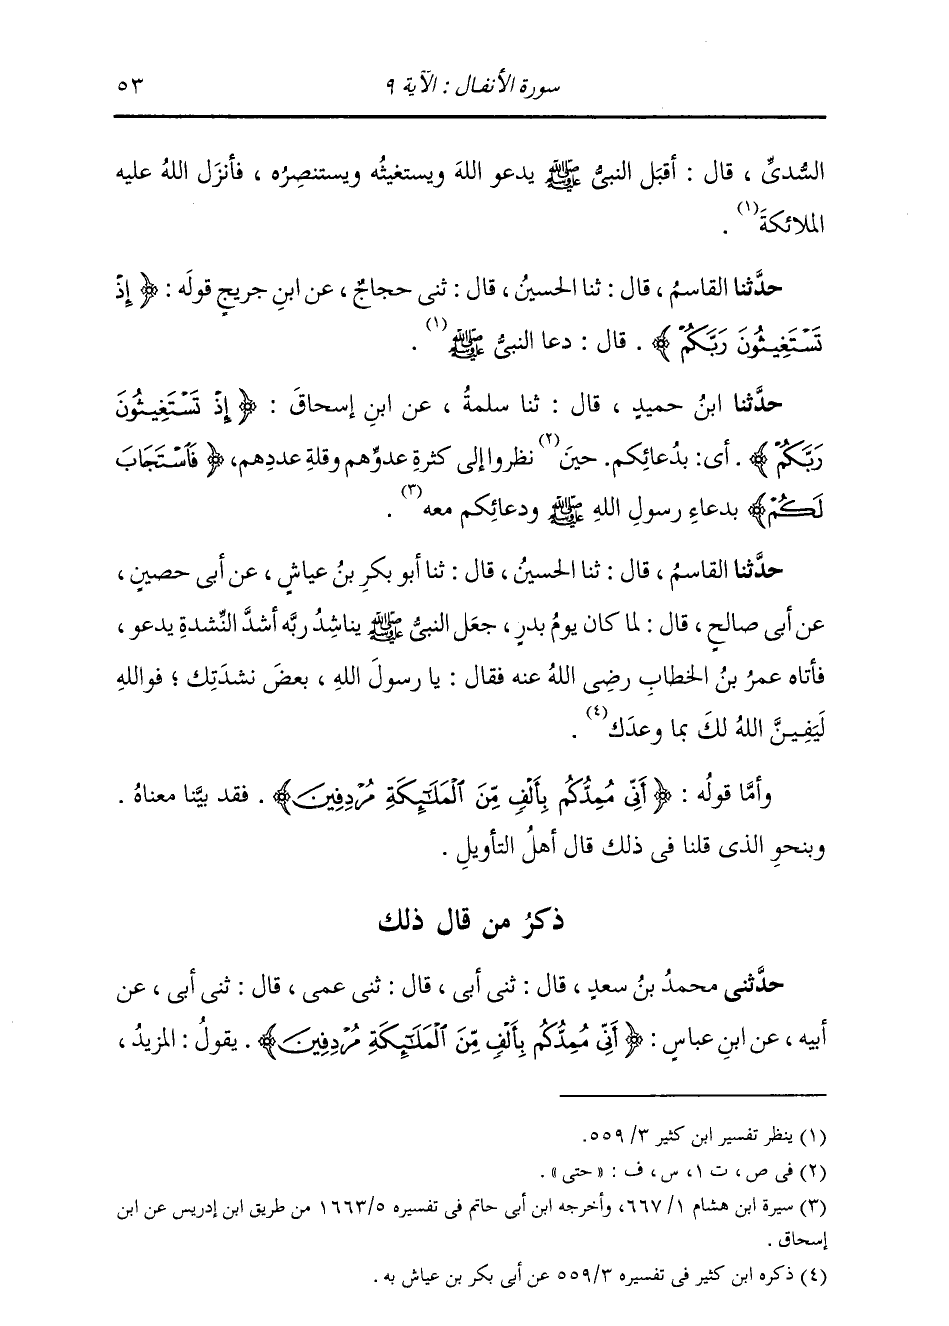 سورة الأنفال : الآية ٩
٥٣
السُّدىِّ ، قال : أقبَل النبىُّ ﷺ يدعو اللهَ ويستغيثُه ويستنصِرُه ، فأنزَل اللهُ عليه
الملائكةَ(١) .
حدَّثنا القاسمُ ، قال : ثنا الحسينُ ، قال : ثنى حجاجٌ ، عن ابنِ جريجٍ قولَه : ﴿ إِذْ
تَسْتَغِيثُونَ رَبَّكُمْ ﴾ . قال : دعا النبىُّ ﷺ(١) .
حدَّثنا ابنُ حميدٍ ، قال : ثنا سلمةُ ، عن ابنِ إسحاقَ : ﴿ إِذْ تَسْتَغِيثُونَ
رَبَّكُمْ ﴾ . أى : بدُعائِكم . حينَ(٢) نظروا إلى كثرةِ عدوِّهم وقلةِ عددِهم، ﴿ فَاسْتَجَابَ
لَكُمْ ﴾ بدعاءِ رسولِ اللهِ ﷺ ودعائِكم معه(٣) .
حدَّثنا القاسمُ ، قال : ثنا الحسينُ ، قال : ثنا أبو بكرِ بنُ عياشٍ ، عن أبى حصينٍ ،
عن أبى صالحٍ ، قال : لما كان يومُ بدرٍ ، جعَل النبىُّ ﷺ يناشِدُ ربَّه أشدَّ النِّشدةِ يدعو ،
فأتاه عمرُ بنُ الخطابِ رضِى اللهُ عنه فقال : يا رسولَ اللهِ ، بعضَ نشدَتِك ؛ فواللهِ
لَيَفِيـنَّ اللهُ لكَ بما وعدَك(٤) .
وأمَّا قولُه : ﴿ أَنِّي مُمِدُّكُم بِأَلْفٍ مِّنَ الْمَلَائِكَةِ مُرْدِفِينَ ﴾ . فقد بيَّنا معناهُ .
وبنحوِ الذى قلنا فى ذلك قال أهلُ التأويلِ .
ذكرُ من قال ذلك
حدَّثنى محمدُ بنُ سعدٍ ، قال : ثنى أبى ، قال : ثنى عمى ، قال : ثنى أبى ، عن
أبيه ، عن ابنِ عباسٍ : ﴿ أَنِّي مُمِدُّكُم بِأَلْفٍ مِّنَ الْمَلَائِكَةِ مُرْدِفِينَ ﴾ . يقولُ : المزيدُ ،
(١) ينظر تفسير ابن كثير ٣/ ٥٥٩.
(٢) فى ص ، ت ١، س ، ف : « حتى » .
(٣) سيرة ابن هشام ١/ ٦٦٧، وأخرجه ابن أبى حاتم فى تفسيره ١٦٦٣/٥ من طريق ابن إدريس عن ابن
إسحاق .
(٤) ذكره ابن كثير فى تفسيره ٥٥٩/٣ عن أبى بكر بن عياش به .